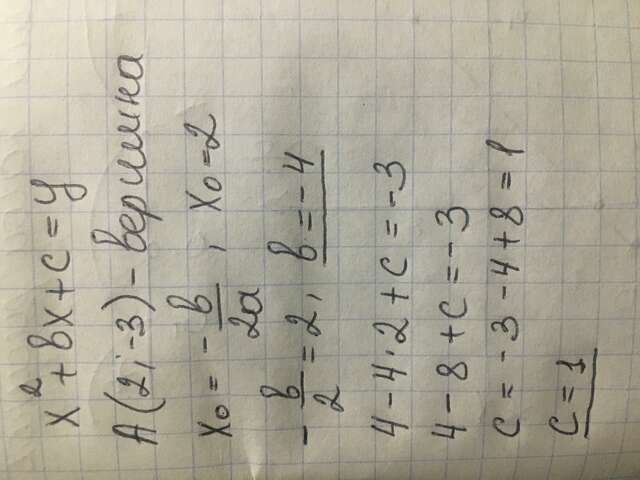 x² + bx + c = y
A(2; -3) - вершина
x₀ = - b/2a, x₀ = 2
- b/2 = 2, b = -4
4 - 4·2 + c = -3
4 - 8 + c = -3
c = -3 - 4 + 8 = 1
c = 1